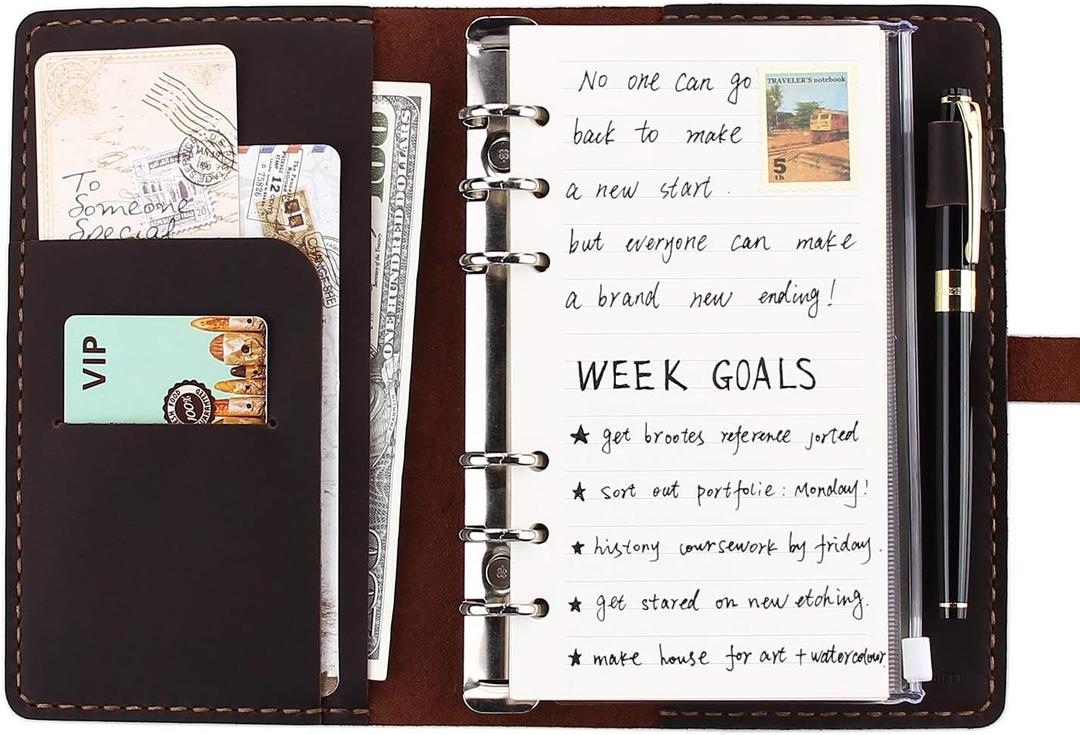 To
Someone
Special
VIP
100%
100
ONE HUNDRED DOLLARS
No one can go
back to make
a new start.
but everyone can make
a brand new ending!
TRAVELER'S notebook
5
th
WEEK GOALS
★ get brootes reference jorted
★ sort out portfolie: Monday!
★ history coursework by friday.
★ get stared on new etching.
★ make house for art + watercolour